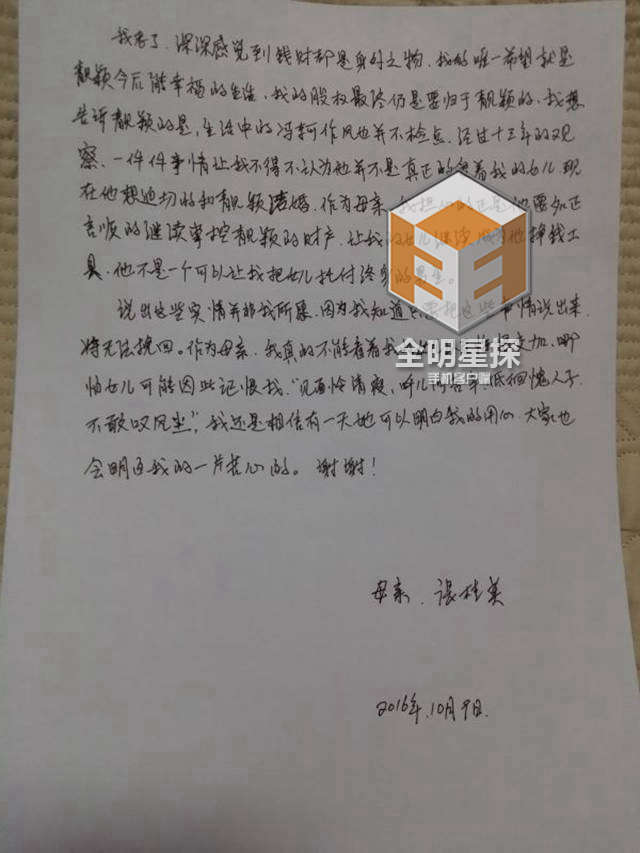 我老了,深深感觉到钱财都是身外之物,我的唯一希望就是
靓颖今后能幸福的生活,我的股权最终仍是要归于靓颖的,我想
告诉靓颖的是,生活中的冯轲作风也并不检点,经过十三年的观
察,一件件事情让我不得不认为他并不是真正的爱着我的女儿,现
在他想迫切的和靓颖结婚,作为母亲,我担心的正是他要如正
言顺的继续掌控靓颖的财产,让我的女儿继续成为他挣钱工
具,他不是一个可以让我把女儿托付终身的男生。
说出这些实情并非我所愿,因为我知道 把这些事情说出来,
将无法挽回。作为母亲,我真的不能看着我 交加,哪
怕女儿可能因此记恨我,“见面怜清瘦,呼儿问苦辛,低徊愧人子,
不敢叹风尘”,我还是相信有一天她可以明白我的用心,大家也
会明白我的一片苦心的。谢谢!
母亲、张桂英
2016年,10月9日.
全明星探
手机客户端